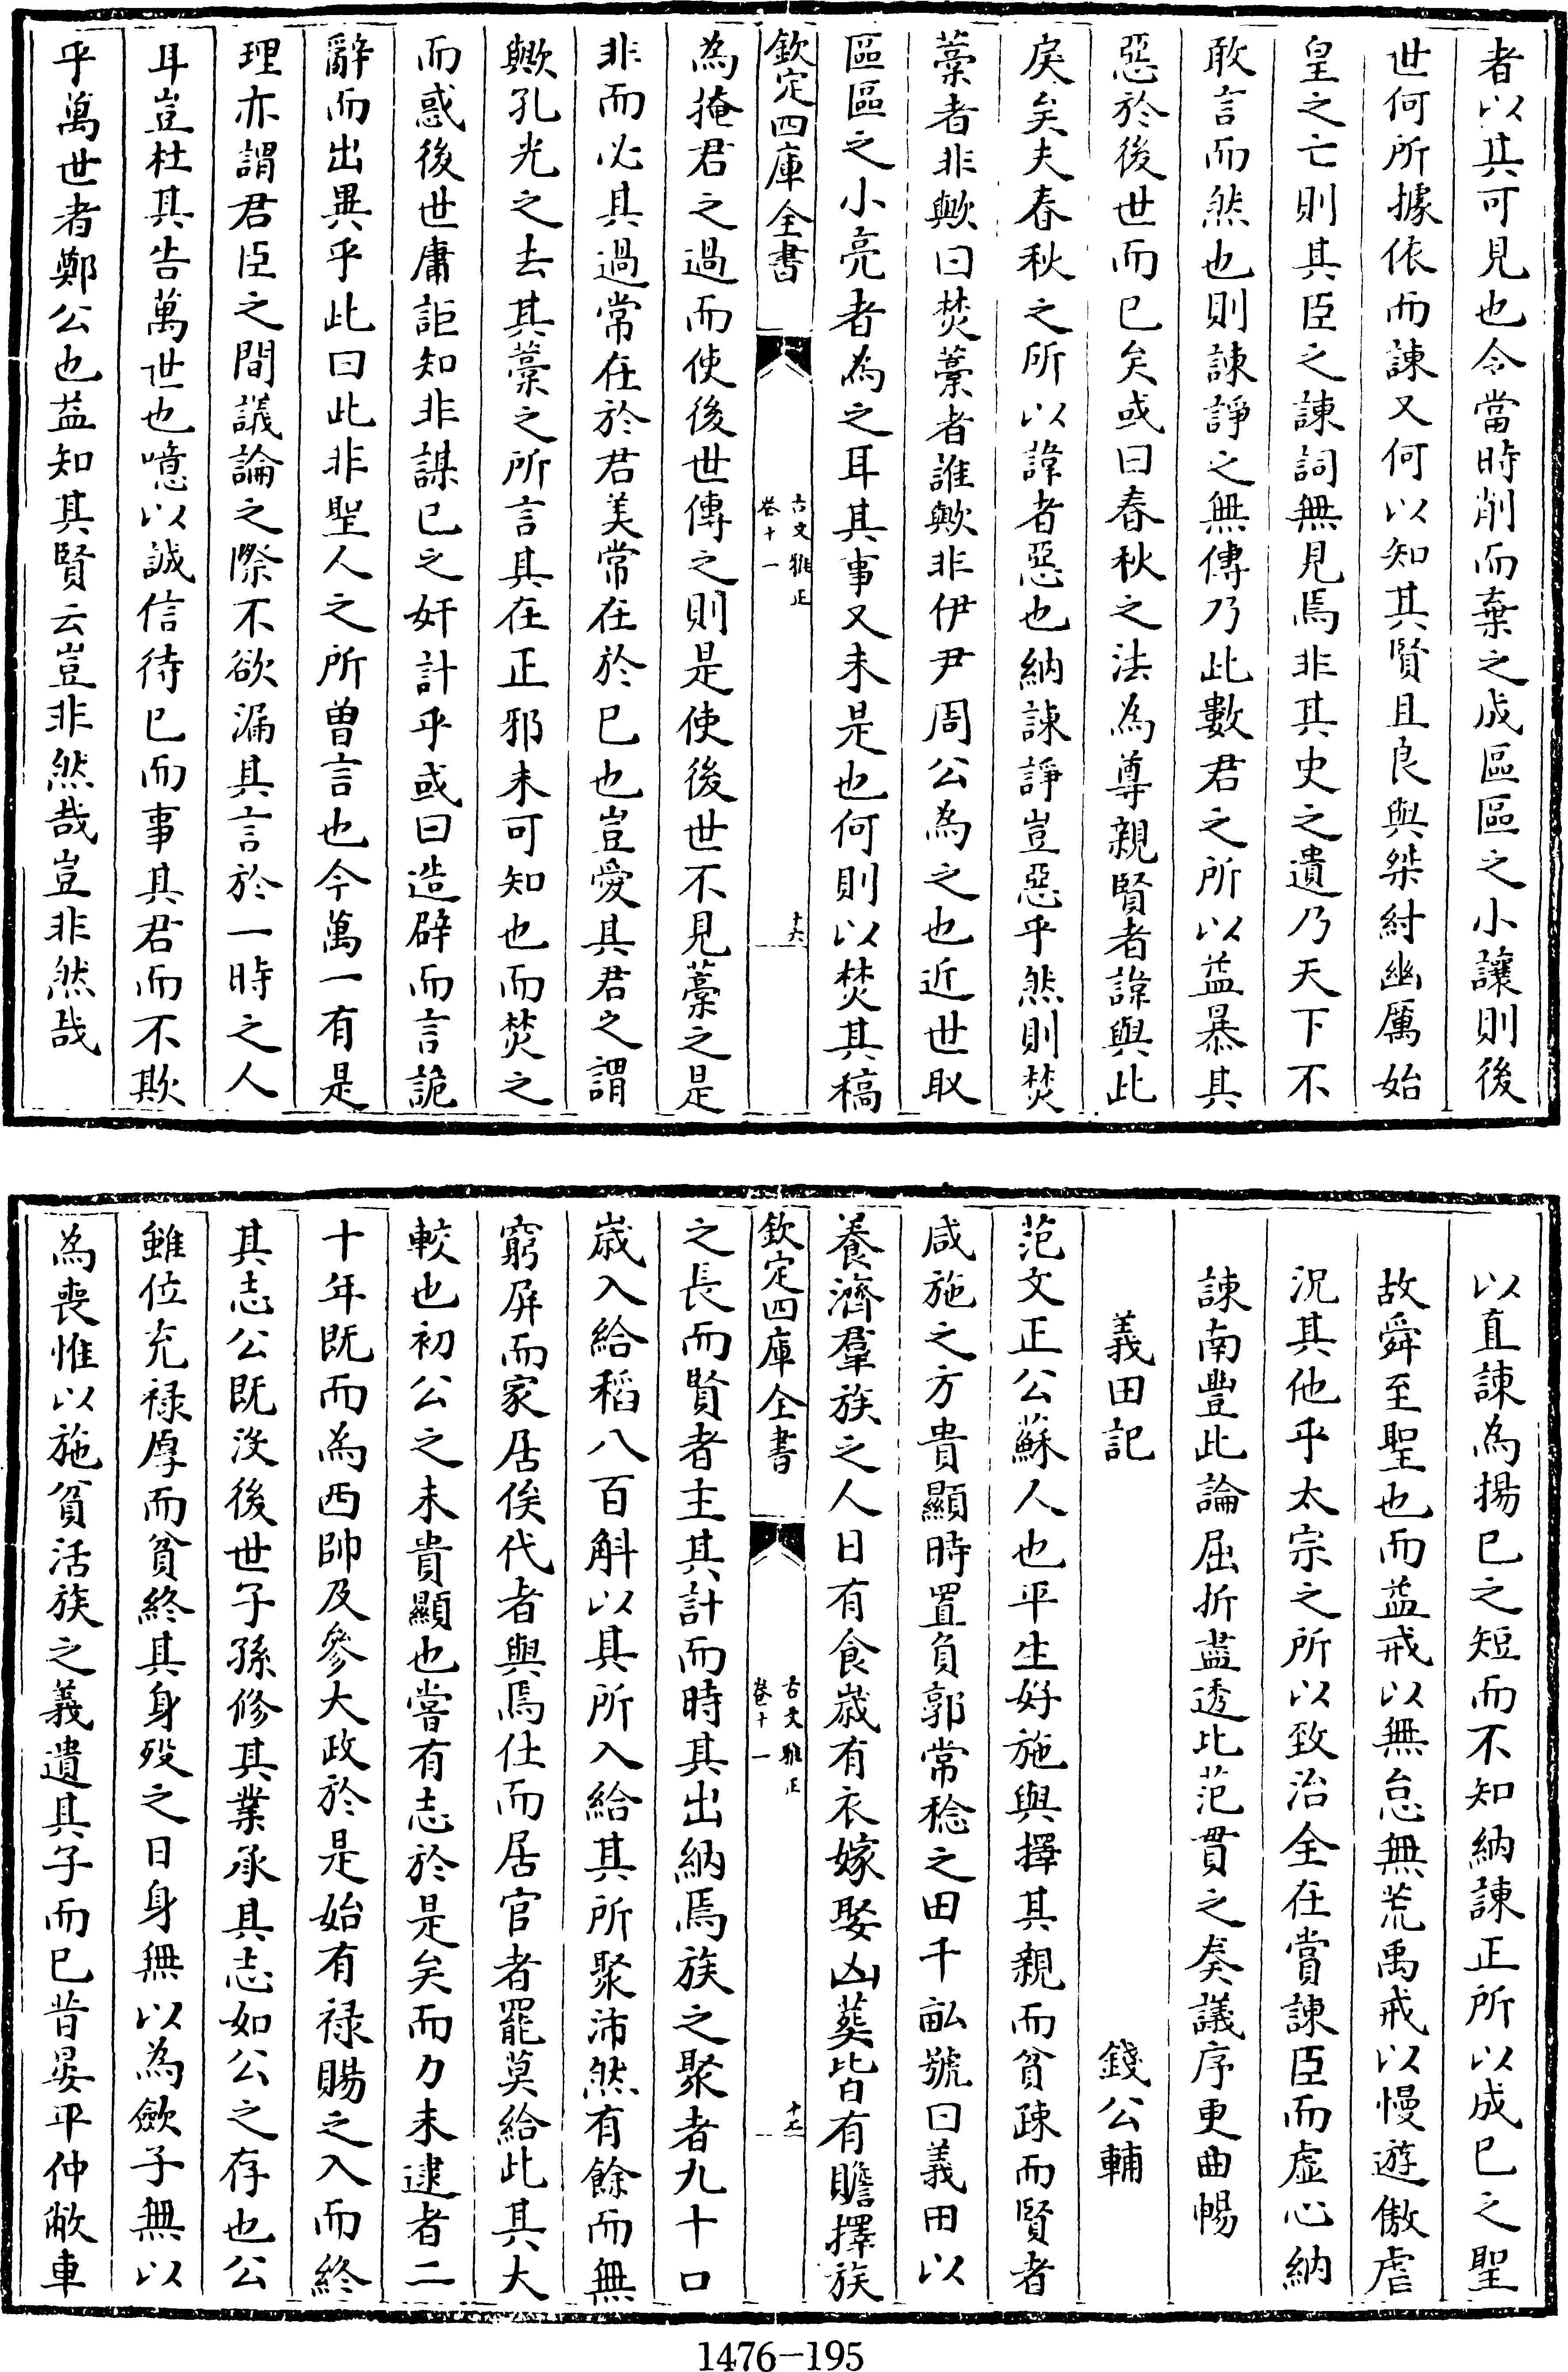 者以其可見也令當時削而棄之成區區之小讓則後
世何所據依而諫又何以知其賢且良與桀紂幽厲始
皇之亡則其臣之諫詞無見焉非其史之遺乃天下不
敢言而然也則諫諍之無傳乃此數君之所以益暴其
惡於後世而已矣或曰春秋之法為尊親賢者諱與此
戾矣夫春秋之所以諱者惡也納諫諍豈惡乎然則焚
藁者非歟曰焚藁者誰歟非伊尹周公為之也近世取
區區之小亮者為之耳其事又未是也何則以焚其稿
欽定四庫全書
古文雅正
卷十一
十六
為掩君之過而使後世傳之則是使後世不見藁之是
非而必其過常在於君美常在於已也豈愛其君之謂
歟孔光之去其藁之所言其在正邪未可知也而焚之
而惑後世庸詎知非謀已之奸計乎或曰造辟而言詭
辭而出異乎此曰此非聖人之所曾言也今萬一有是
理亦謂君臣之間議論之際不欲漏其言於一時之人
耳豈杜其告萬世也噫以誠信待已而事其君而不欺
乎萬世者鄭公也益知其賢云豈非然哉豈非然哉
以直諫為揚已之短而不知納諫正所以成已之聖
故舜至聖也而益戒以無怠無荒禹戒以慢遊傲虐
況其他乎太宗之所以致治全在賞諫臣而虛心納
諫南豐此論屈折盡透比范貫之奏議序更曲暢
義田記
錢公輔
范文正公蘇人也平生好施與擇其親而貧疎而賢者
咸施之方貴顯時置負郭常稔之田千畝號曰義田以
養濟羣族之人日有食歲有衣嫁娶凶葬皆有贍擇族
欽定四庫全書
古文雅正
卷十一
十七
之長而賢者主其計而時其出納焉族之聚者九十口
歲入給稻八百斛以其所入給其所聚沛然有餘而無
窮屏而家居俟代者與焉仕而居官者罷莫給此其大
較也初公之未貴顯也嘗有志於是矣而力未逮者二
十年既而為西帥及參大政於是始有祿賜之入而終
其志公既沒後世子孫修其業承其志如公之存也公
雖位充祿厚而貧終其身歿之日身無以為斂子無以
為喪惟以施貧活族之義遺其子而已昔晏平仲敝車
1476-195